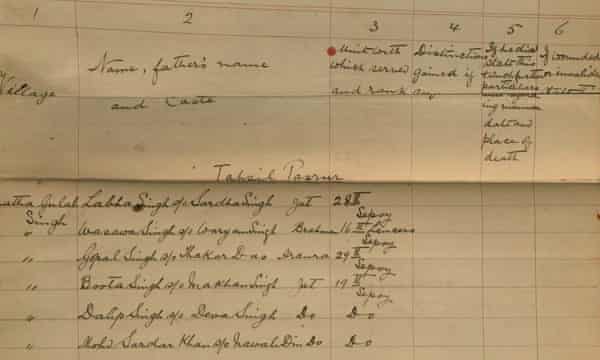 1 2 3 4 5 6
Village
Name, father's name
and Caste
Unit with
which served
and rank
Distinctions
gained if
any
If he died
state this
and
particulars
date and
place of
death
If wounded
or invalided
Tahsil Pasrur
Gulab Labha Singh s/o Sardha Singh Jat 28th
Singh Sepoy
" Wasawa Singh s/o Waryam Singh Brahman 16th Lancers
Sepoy
" Gopal Singh s/o Thakar Das Araura 29th
Sepoy
" Boota Singh s/o Makhan Singh Jat 19th
Sepoy
" Dalip Singh s/o Dewa Singh Do Do
" Mohd Sardar Khan s/o Nawab Din Do Do